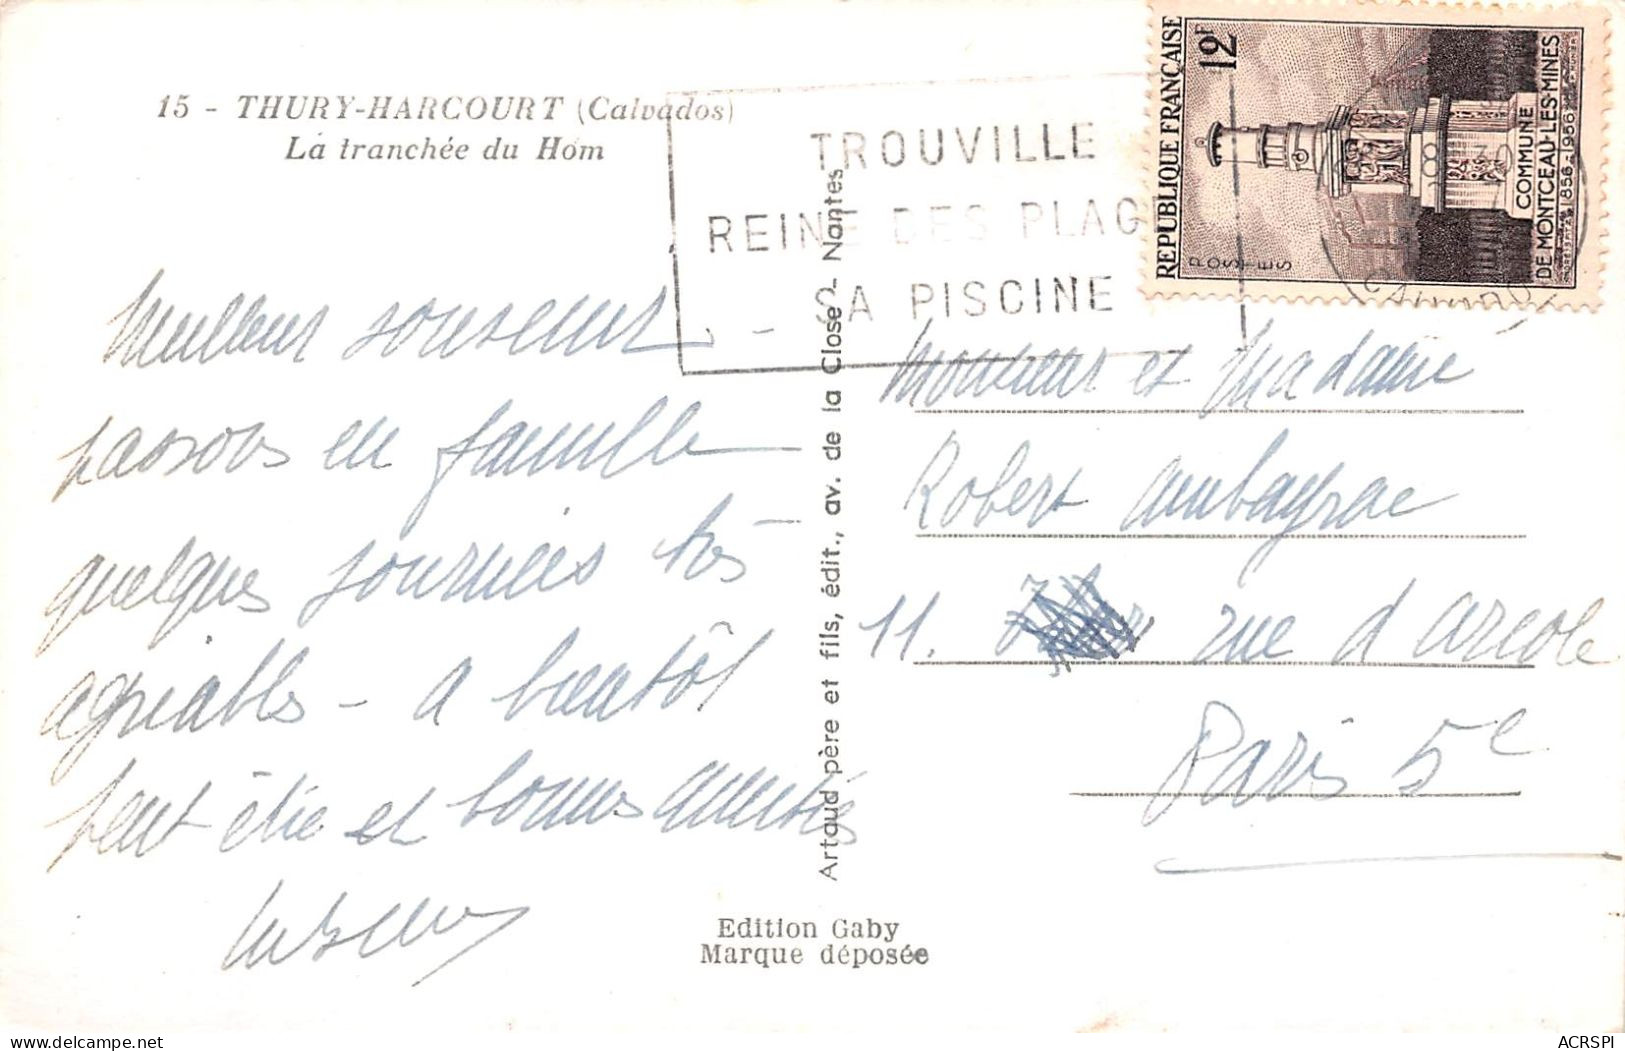 15 - THURY-HARCOURT (Calvados)
La tranchée du Hom
TROUVILLE
REINE DES PLAG
SA PISCINE
REPUBLIQUE FRANÇAISE
12F
POSTES
COMMUNE
DE MONTCEAU-LES-MINES
1856-1956
Meilleurs souvenirs
passons en famille
quelques journées très
agréables - a bientôt
peut être et bonnes amitiés
Monsieur et Madame
Robert Ambayrac
11. rue d'Arcole
Paris 5e
Artaud père et fils, édit., av. de la Close - Nantes
Edition Gaby
Marque déposée
ACRSPI